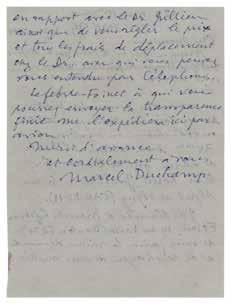 en rapport avec le Dr Jullien
ainsi que de vous régler le prix
et tous les frais de déplacement
chez le Dr. avec qui vous pouvez
vous entendre par téléphone.
Lefebre-Foinet à qui vous
pourrez envoyer la transparence
me l'expédiera ici par
avion
Merci d'avance
et cordialement à vous
Marcel Duchamp